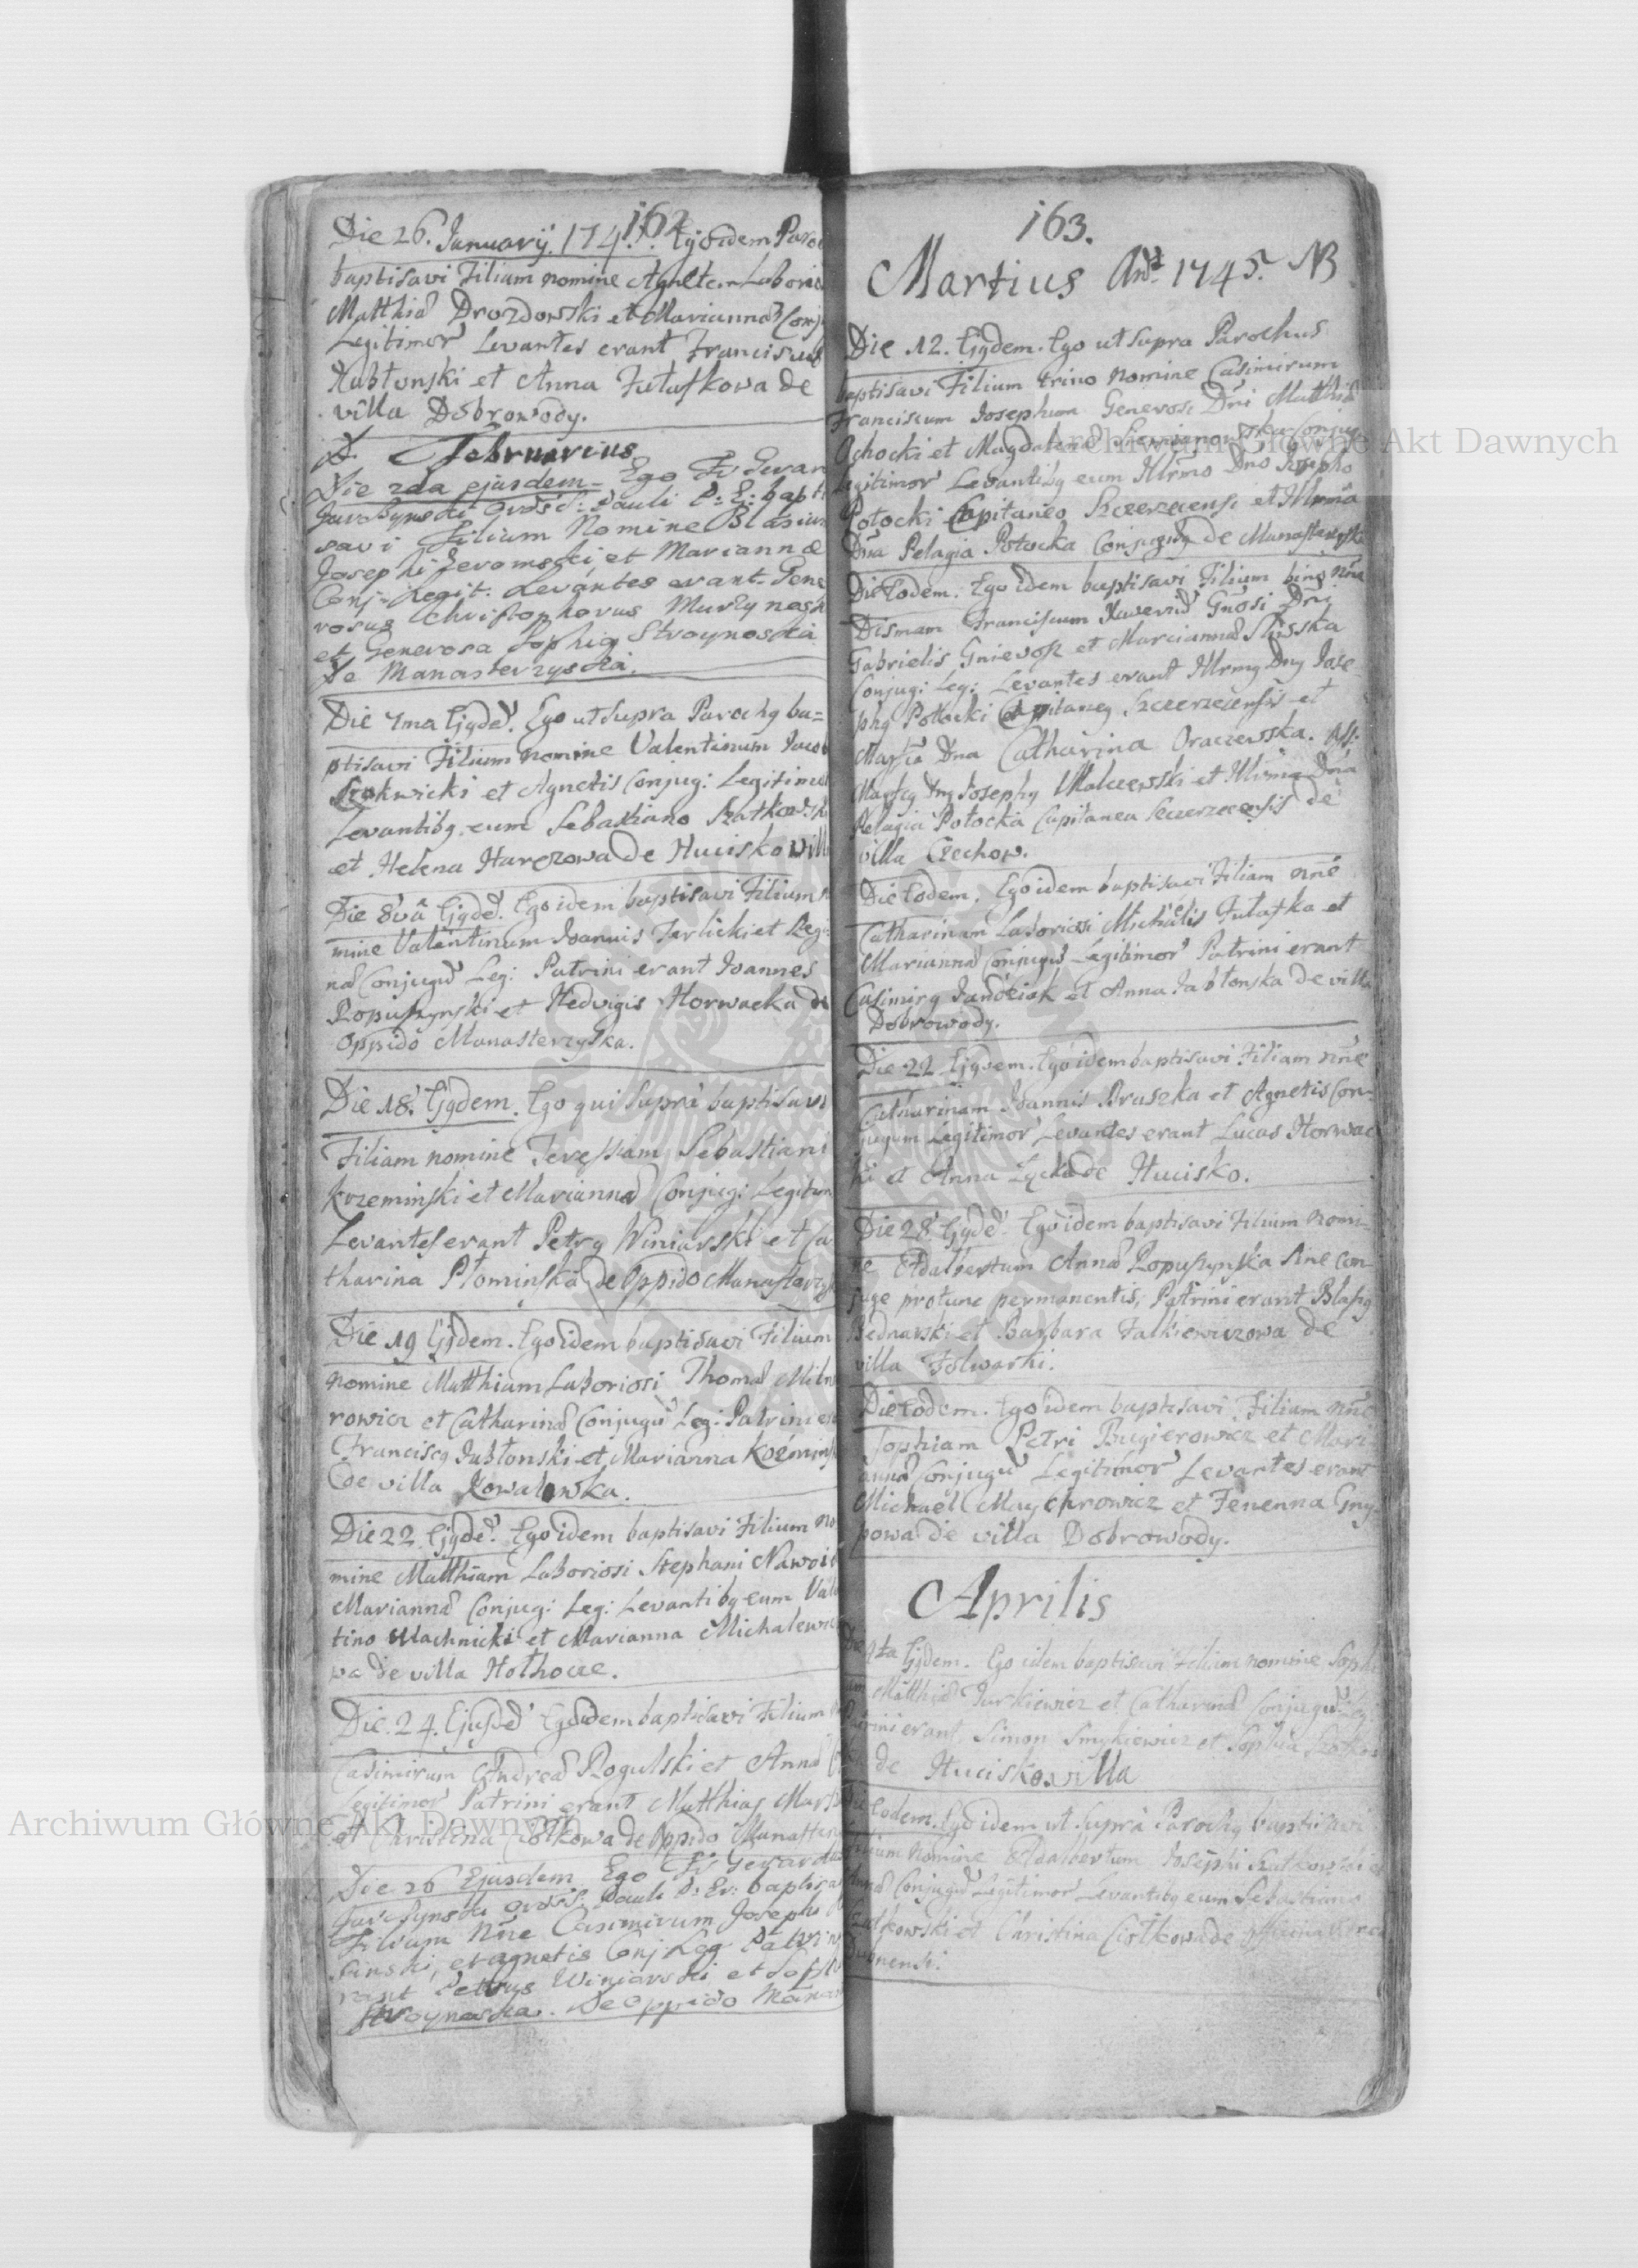 162
Die 26. Januarij. 174. Ego idem Paro
baptisavi Filiam nomine Agnetem Laborio
Matthiæ Drozdowski et Mariannæ Conj
Legitimor Levantes erant Franciscus
Jabłonski et Anna Futaſkowa de
villa Dobrowody.
Februarius
Die 2da ejusdem. Ego Fr Gerar
Jarosynski Ords S: Pauli P: E: bapti
savi Filium Nomine Blasium
Josephi Zeromski et Mariannæ
Conj: Legit: Levantes erant Gene
rosus Christophorus Murzynosk
et Generosa Sophia Stroynoska
De Manasterzyska.
Die 7ma Ejqdē. Ego ut supra Parochq ba=
ptisavi Filium nomine Valentinum Jacob
Krokwicki et Agnetis Conjug: Legitimo
Levantibq eum Sebastiano Szatkowsk
et Helena Harczowa de Hucisko vill
Die 8vâ Ejqdē. Ego idem baptisavi Filium
mine Valentinum Joannis Tarlicki et Regi
næ Conjugū Leg: Patrini erant Joannes
Ropuszynski et Hedvigis Horwacka de
Oppido Manasterzyska.
Die 18. Ejqdem. Ego qui supra baptisavi
Filiam nomine Teressiam Sebastiani
Krzeminski et Mariannæ Conjug: Legitim
Levantes erant Petrq Winiarski et Ca
tharina Płominska de Oppido Manasterzys
Die 19 Ejqdem. Ego idem baptisavi Filium
nomine Matthiam Laboriosi Thomæ Miln
rowicz et Catharinæ Conjugū Leg: Patrini er
Franciscq Jabłonski et Marianna Kozmins
de villa Kowalowka.
Die 22. Ejqdē. Ego idem baptisavi Filium no
mine Matthiam Laboriosi Stephani Nawoi
Mariannæ Conjug: Leg: Levantibq eum Vale
tino Machnicki et Marianna Michalewic
wa de villa Hołhocze.
Die 24. Ejusdē Ego idem baptisavi Filium
Casimirum Andreæ Rogulski et Annæ
Legitimor Patrini erant Matthias Mars
et Christina Ciołkowa de Oppido Manaster
Die 26 Ejusdem Ego Fr Gerardus
Jarosynski Ords S: Pauli P: Er: baptisa
Filium Nñe Casimirum Josephi
sinski, et Agnetis Conj Leg Patrini
rant Petrus Winiarski et Sophi
Stroynoska. De Oppido Manas
163.
Martius Anº 1745. NB
Die 12. Ejqdem. Ego ut supra Parochus
baptisavi Filium trino nomine Casimirum
Franciscum Josephum Generosi Dñi Matthiæ
Ochocki et Magdalenæ Conjug
Legitimor Levantibq eum Illrmo Dno Josepho
Potocki Capitaneo Szczerzecensi et Illrma
Dña Pelagia Potocka Conjugibq de Manasterzyska
Die Eodem. Ego idem baptisavi Filium bino nñe
Dismam Franciscum Xaveriū Gnosi Dñi
Gabrielis Gnievosz et Mariannæ Sliwska
Conjug: Leg: Levantes erant Illrmq Dnq Jose-
phq Potocki Capitaneq Szczerzecensis et
Magfca Dna Catharina Oraczewska. Ass:
Magfcq Dnq Josephq Malczewski et Illrma Dña
Pelagia Potocka Capitanea Szczerzecensis de
villa Czechow.
Die Eodem. Ego idem baptisavi Filiam nñe
Catharinam Laboriosi Michælis Futaſka et
Mariannæ Conjugū Legitimor Patrini erant
Casimirq Jandziak et Anna Jabłonska de villa
Dobrowody.
Die 22 Ejqdem. Ego idem baptisavi Filiam nñe
Catharinam Joannis Braszka et Agnetis Con-
jugum Legitimor Levantes erant Lucas Horwac
ki et Anna Zycka de Hucisko.
Die 28 Ejqdē Ego idem baptisavi Filium nomi-
ne Adalbertum Annæ Ropuszynska sine con-
juge protunc permanentis, Patrini erant Blasiq
Bednarski et Barbara Falkiewiczowa de
villa Folwarki.
Die Eodem. Ego idem baptisavi Filiam nñe
Sophiam Petri Bugierowicz et Mari
annæ Conjugū Legitimor Levantes erant
Michaël Maychrowicz et Fenenna Gny
powa de villa Dobrowody.
Aprilis
Die 4ta Ejqdem. Ego idem baptisavi Filiam nomine Sophi
am Matthiæ Jurkiewicz et Catharinæ Conjugū Leg
Patrini erant Simon Smykiewicz et Sophia Szatkow
de Hucisko villa
Die Eodem. Ego idem ut supra Parochq baptisavi
Filium nomine Adalbertum Josephi Szatkowski et
Annæ Conjugū Legitimor Levantibq eum Sebastiano
Szatkowski et Christina Ciołkowa de
Archiwum Główne Akt Dawnych
Archiwum Główne Akt Dawnych